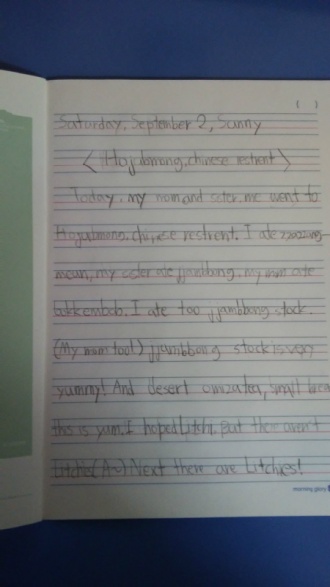 ( )
Saturday, September 2, Sunny
< Hojudamong, chinese restrent >
Today, my mom and sister, me went to
chinese restrent. I ate
my sister ate jjambbong, my mom ate
I ate too jjambbong stock.
(My mom too!) jjambbong stock is very
yummy! And desert omiza tea, small brea
this is yum. I hoped Litchi, But there aren't
Litches(A~) Next there are Litchies!
morning glory